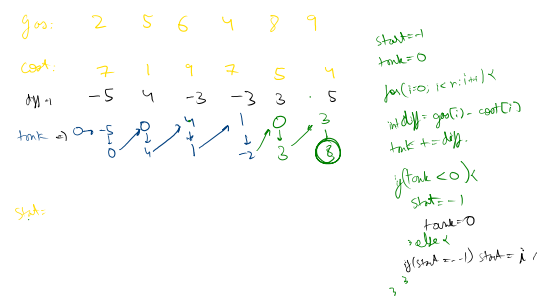 gas: 2 5 6 4 8 9
cost: 7 1 9 7 5 4
diff → -5 4 -3 -3 3 5
tank => 0 → -5 0 4 1 0 3
0 4 1 -2 3 8
start:
start = -1
tank = 0
for(i=0; i<n; i++){
int diff = gas[i] - cost[i]
tank += diff.
if(tank < 0){
start = -1
tank = 0
}else{
if(start == -1) start = i;
}
}